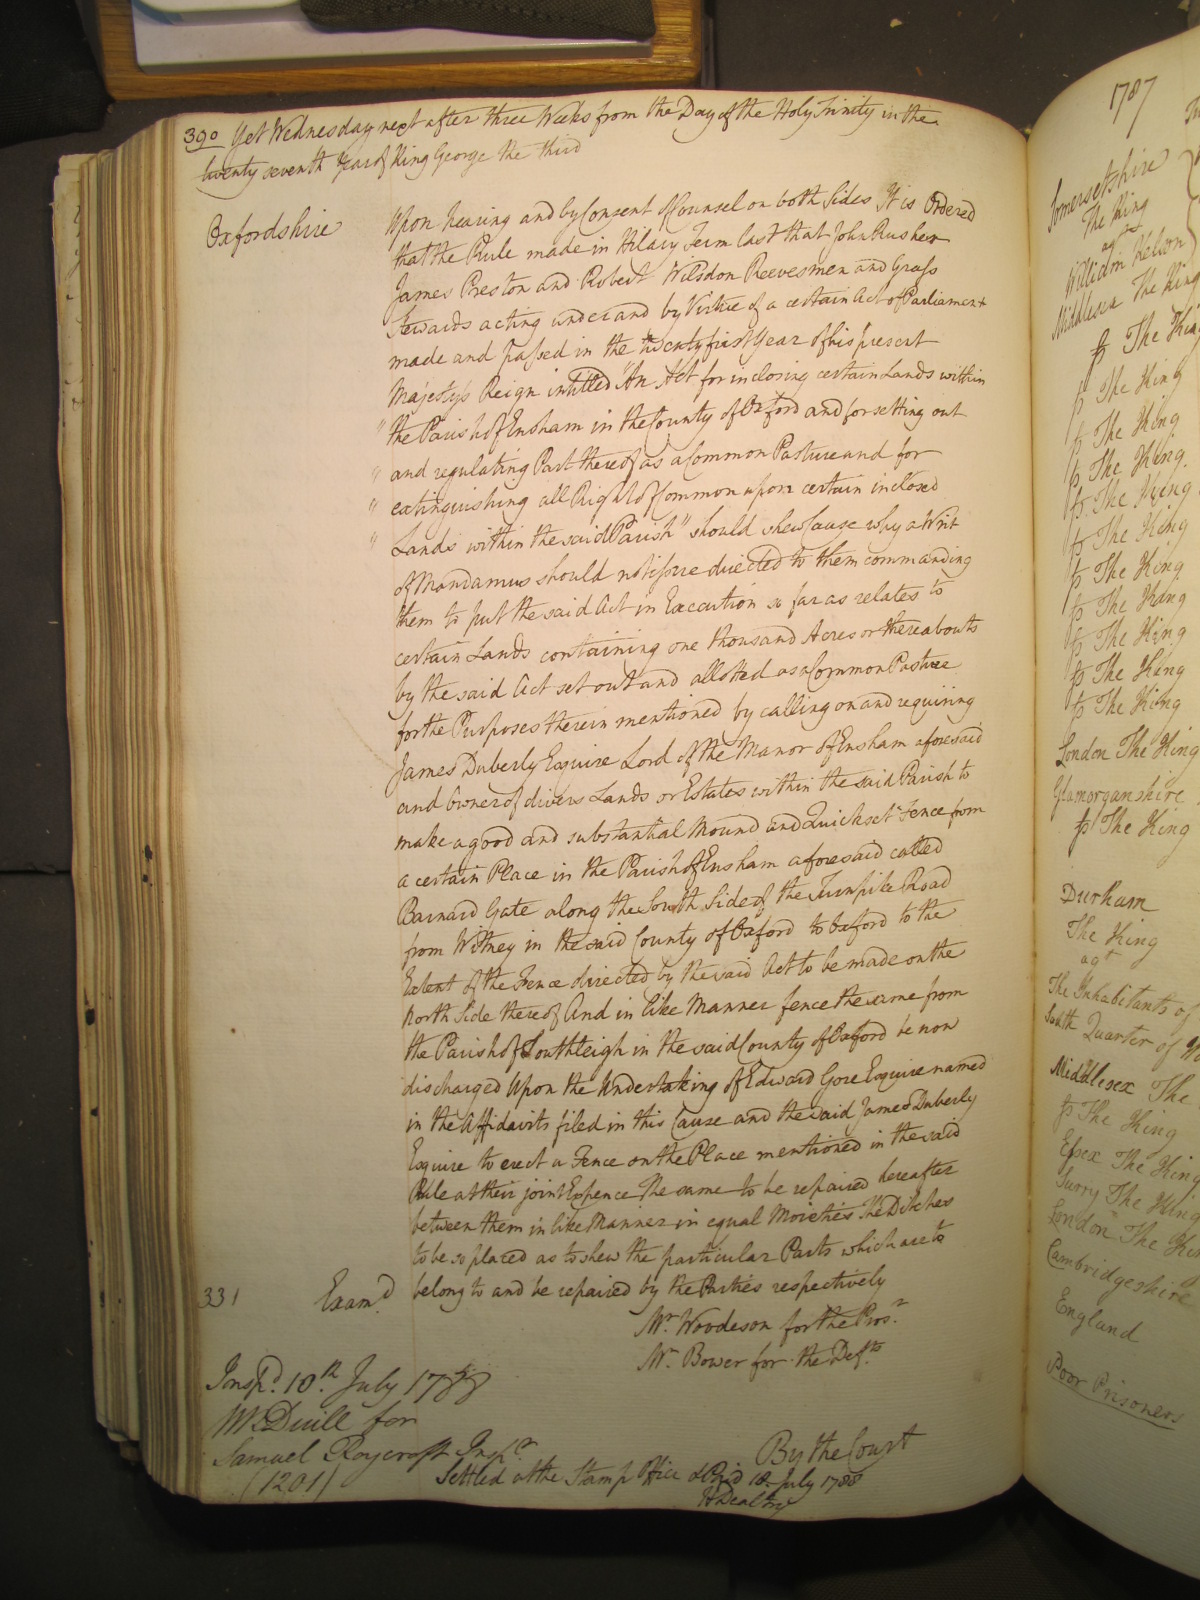 390 Yet Wednesday next after three Weeks from the Day of the Holy Trinity in the
twenty seventh Year of King George the third
Oxfordshire
Upon hearing and by Consent of Counsel on both Sides It is Ordered
that the Rule made in Hilary Term last that John Rusher
James Preston and Robert Wilsdon Reevesmen and Grass
Stewards acting under and by Virtue of a certain Act of Parliament
made and passed in the twenty first Year of his present
Majesty's Reign intitled "An Act for inclosing certain Lands within
" the Parish of Ensham in the County of Oxford and for setting out
" and regulating Part thereof as a Common Pasture and for
" extinguishing all Right of Common upon certain inclosed
" Lands within the said Parish" should shew Cause why a Writ
of Mandamus should not issue directed to them commanding
them to put the said Act in Execution so far as relates to
certain Lands containing one thousand Acres or thereabouts
by the said Act set out and allotted as a Common Pasture
for the Purposes therein mentioned by calling on and requiring
James Duberly Esquire Lord of the Manor of Ensham aforesaid
and Owner of divers Lands or Estates within the said Parish to
make a good and substantial Mound and Quickset Fence from
a certain Place in the Parish of Ensham aforesaid called
Barnard Gate along the South Side of the Turnpike Road
from Witney in the said County of Oxford to Oxford to the
Extent of the Fence directed by the said Act to be made on the
North Side thereof And in like Manner fence the same from
the Parish of Southleigh in the said County of Oxford be now
discharged Upon the Undertaking of Edward Gore Esquire named
in the Affidavits filed in this Cause and the said James Duberly
Esquire to erect a Fence on the Place mentioned in the said
Rule at their joint Expence The same to be repaired hereafter
between them in like Manner in equal Moieties The Ditches
to be so placed as to shew the particular Parts which are to
belong to and be repaired by the Parties respectively
331
Exam.d
Mr. Woodeson for the Pros.r
Mr. Bower for the Def.ts
Insp.d 10.th July 1788
for
Samuel Roycroft Insp.r
(1201)
By the Court
Settled at the Stamp Office & Paid 18 July 1788
H Dealtry
1787
Somersetshire
The King
ag.t
William Nelson
Middlesex The King
The King
The King
The King
The King
The King
The King
The King
The King
The King
The King
The King
London The King
Glamorganshire
The King
Durham
The King
ag.t
The Inhabitants of
South Quarter of
Middlesex The
The King
Essex The King
Surry The King
London The
Cambridgeshire
England
Poor Prisoners